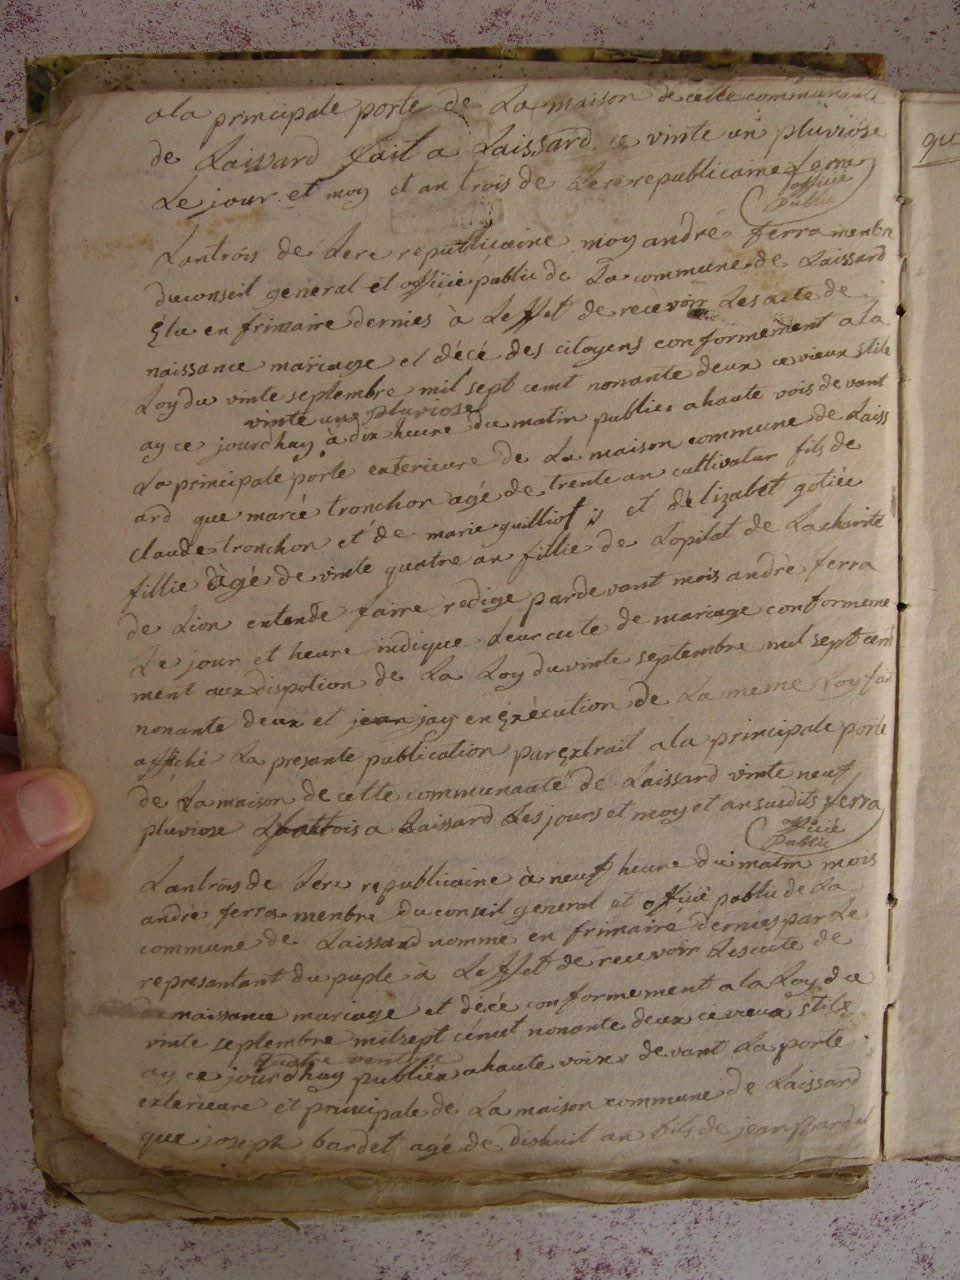 ala principale porte de La maison de cette communauté
de Laissard fait a Laissard ce vinte un pluviose
Le jour et moy et an trois de Lere republicaine ferra
officié
public
Lantrois de Lere republicaine moy andré ferra menbre
du conseil general et officié public de La commune de Laissard
Elu en frimaire dernies à Leffet de recevoir Les acte de
naissance mariage et décé des citoyens conformement ala
Loy du vinte septembre mil sept cemt nonante deux ce vieux stile
vinte une pluviose
ay ce jourdhuy à dix heure du matin publies a haute vois de vant
La principale porte exterieure de La maison commune de Laiss
ard que marcé tronchon agé de trente an cultivatur fils de
claude tronchon et de marie guilliot et de lizabet gotiée
fillie àgé de vinte quatre an fillie de Lopital de La charité
de Lion entende faire redige parde vant mois andrè ferra
Le jour et heure indique Leur acte de mariage conformeme
ment aux dispotion de La Loy du vinte septembre mil sept cem
nonante deux et jean jay en Exécution de La meme Loy fai
affiché La presante publication par Extrait ala principale porte
de La maison de cette communauté de Laissard vinte neuf
pluviose Lantrois a Laissard Les jours et moy et an susdits ferra
officié
public
Lantrois de Lére republicaine à neuf heure du matin mois
andrè ferra menbre du conseil general et officié public de La
commune de Laissard nomme en frimairé dernies par Le
represantant du puple à Leffet de recevoir Les acte de
naissance mariage et décé conformement a la Loy du
vinte septembre mil sept cemt nonante deux ce vieux stile
quatre ventose
ay ce jourdhuy publiéx a haute voixs devant La porte
exterieure et principale de La maison commune de Laissard
que joseph bardet agé de dishuit an fils de jean Bardet
que